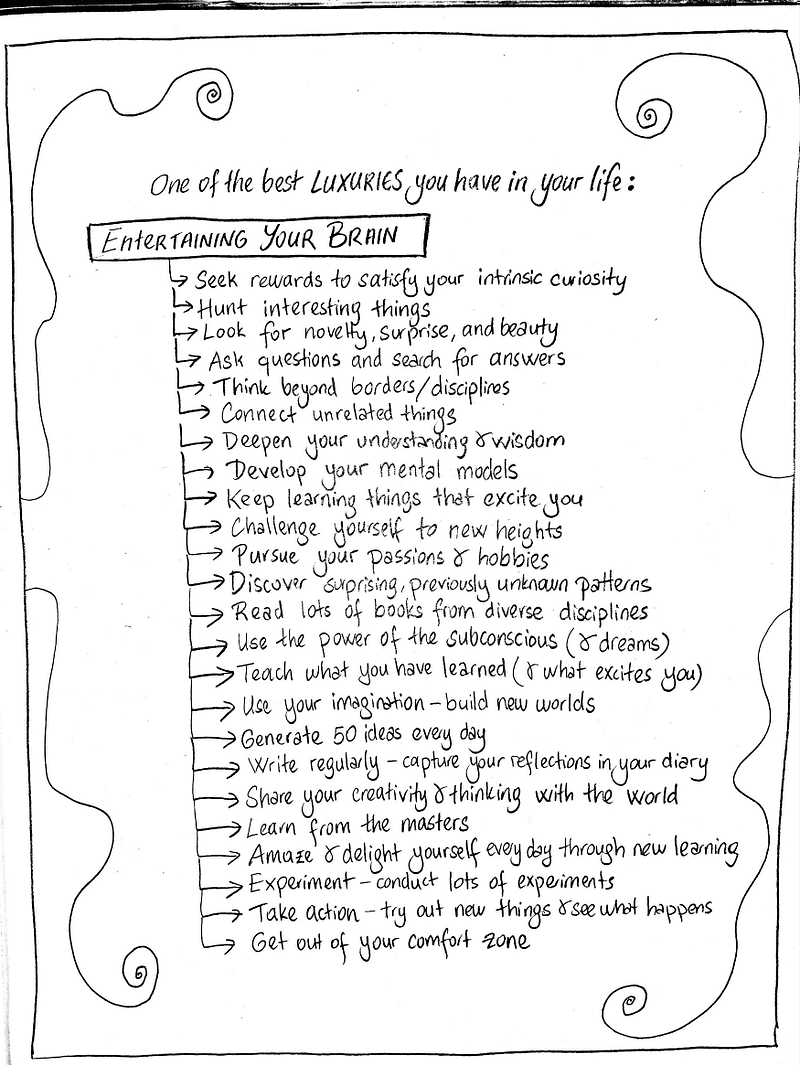 One of the best LUXURIES you have in your life:
EntERTAINING YOUR BRAIN
Seek rewards to satisfy your intrinsic curiosity
Hunt interesting things
Look for novelty, surprise, and beauty
Ask questions and search for answers
Think beyond borders/disciplines
Connect unrelated things
Deepen your understanding & wisdom
Develop your mental models
Keep learning things that excite you
Challenge yourself to new heights
Pursue your passions & hobbies
Discover surprising, previously unknown patterns
Read lots of books from diverse disciplines
Use the power of the subconscious (& dreams)
Teach what you have learned (& what excites you)
Use your imagination – build new worlds
Generate 50 ideas every day
Write regularly – capture your reflections in your diary
Share your creativity & thinking with the world
Learn from the masters
Amaze & delight yourself every day through new learning
Experiment – conduct lots of experiments
Take action – try out new things & see what happens
Get out of your comfort zone